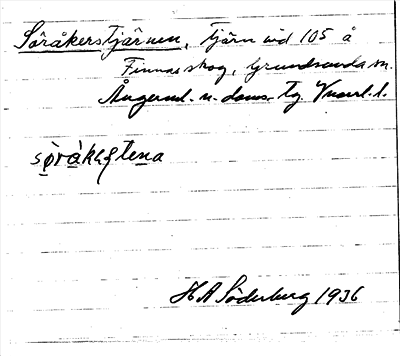 Söråkerstjärnen, tjärn vid 105 å
Finnas skog, Grundsunda sn.
Ångerml. n. doms. tg
H A Söderberg 1936